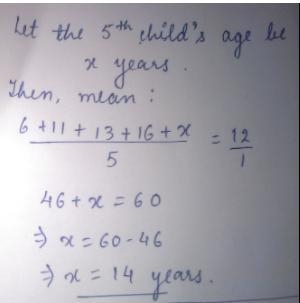 Let the 5th child's age be
x years.
Then, mean :
6 + 11 + 13 + 16 + x / 5 = 12 / 1
46 + x = 60
⇒ x = 60 - 46
⇒ x = 14 years.